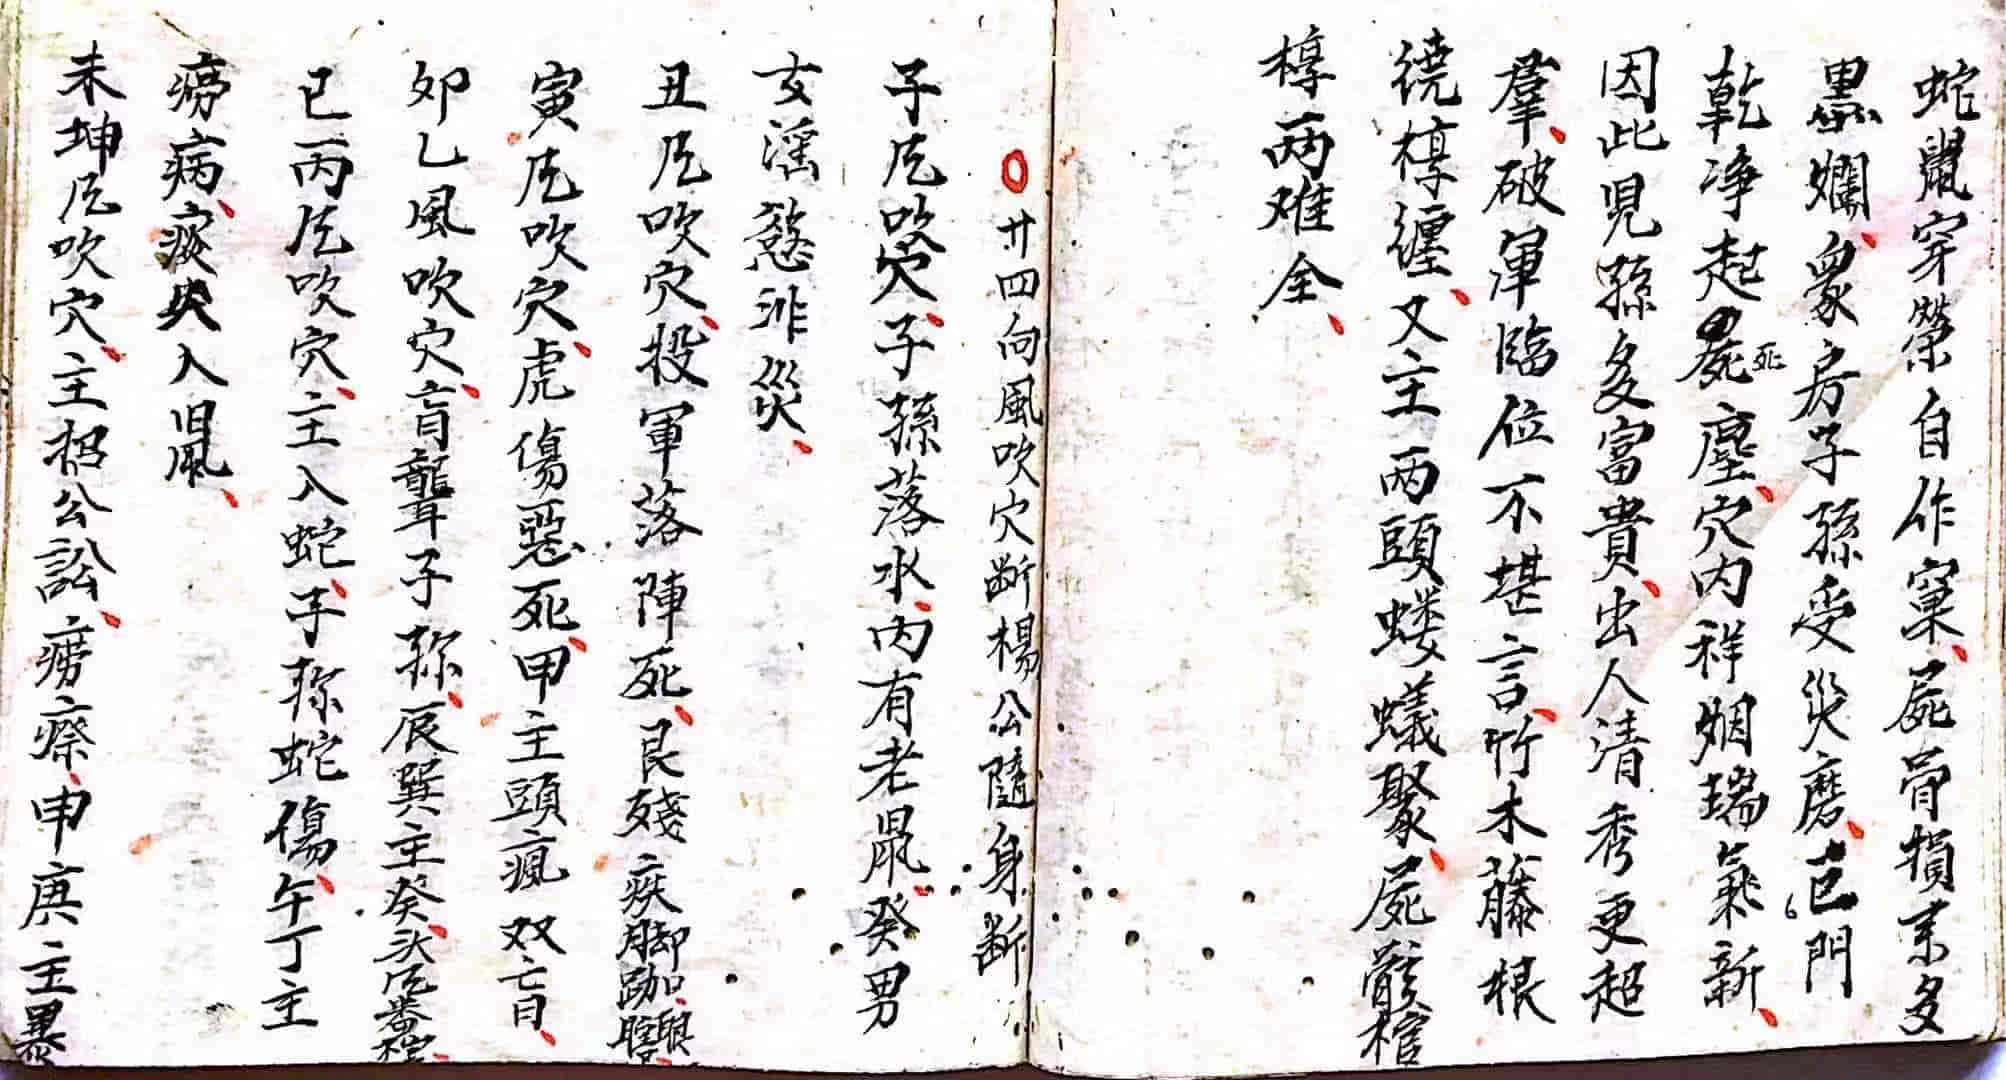 蛇鼠穿棺自作窠屍骨損来多
黑爛衆房子孫受災磨巨門
乾净起屍死塵穴内祥烟瑞氣新
因此児孫多富貴出人清秀更超
羣破軍臨位不堪言竹木藤根
繞椁纏又主两頭螻蟻聚屍骸棺
椁两难全
廿四向風吹穴断楊公隨身断
子风吹穴子孫落水内有老鼠癸男
女滛慾淮災
丑风吹穴投軍落陣死艮殘疾脚跏
寅风吹穴虎傷惡死甲主頭瘋双盲
夘乙風吹穴盲聾子孫辰巽主癸
巳丙风吹穴主入蛇子孫蛇傷午丁主
癆病入
未坤风吹穴主招公訟癆瘵申庚主暴